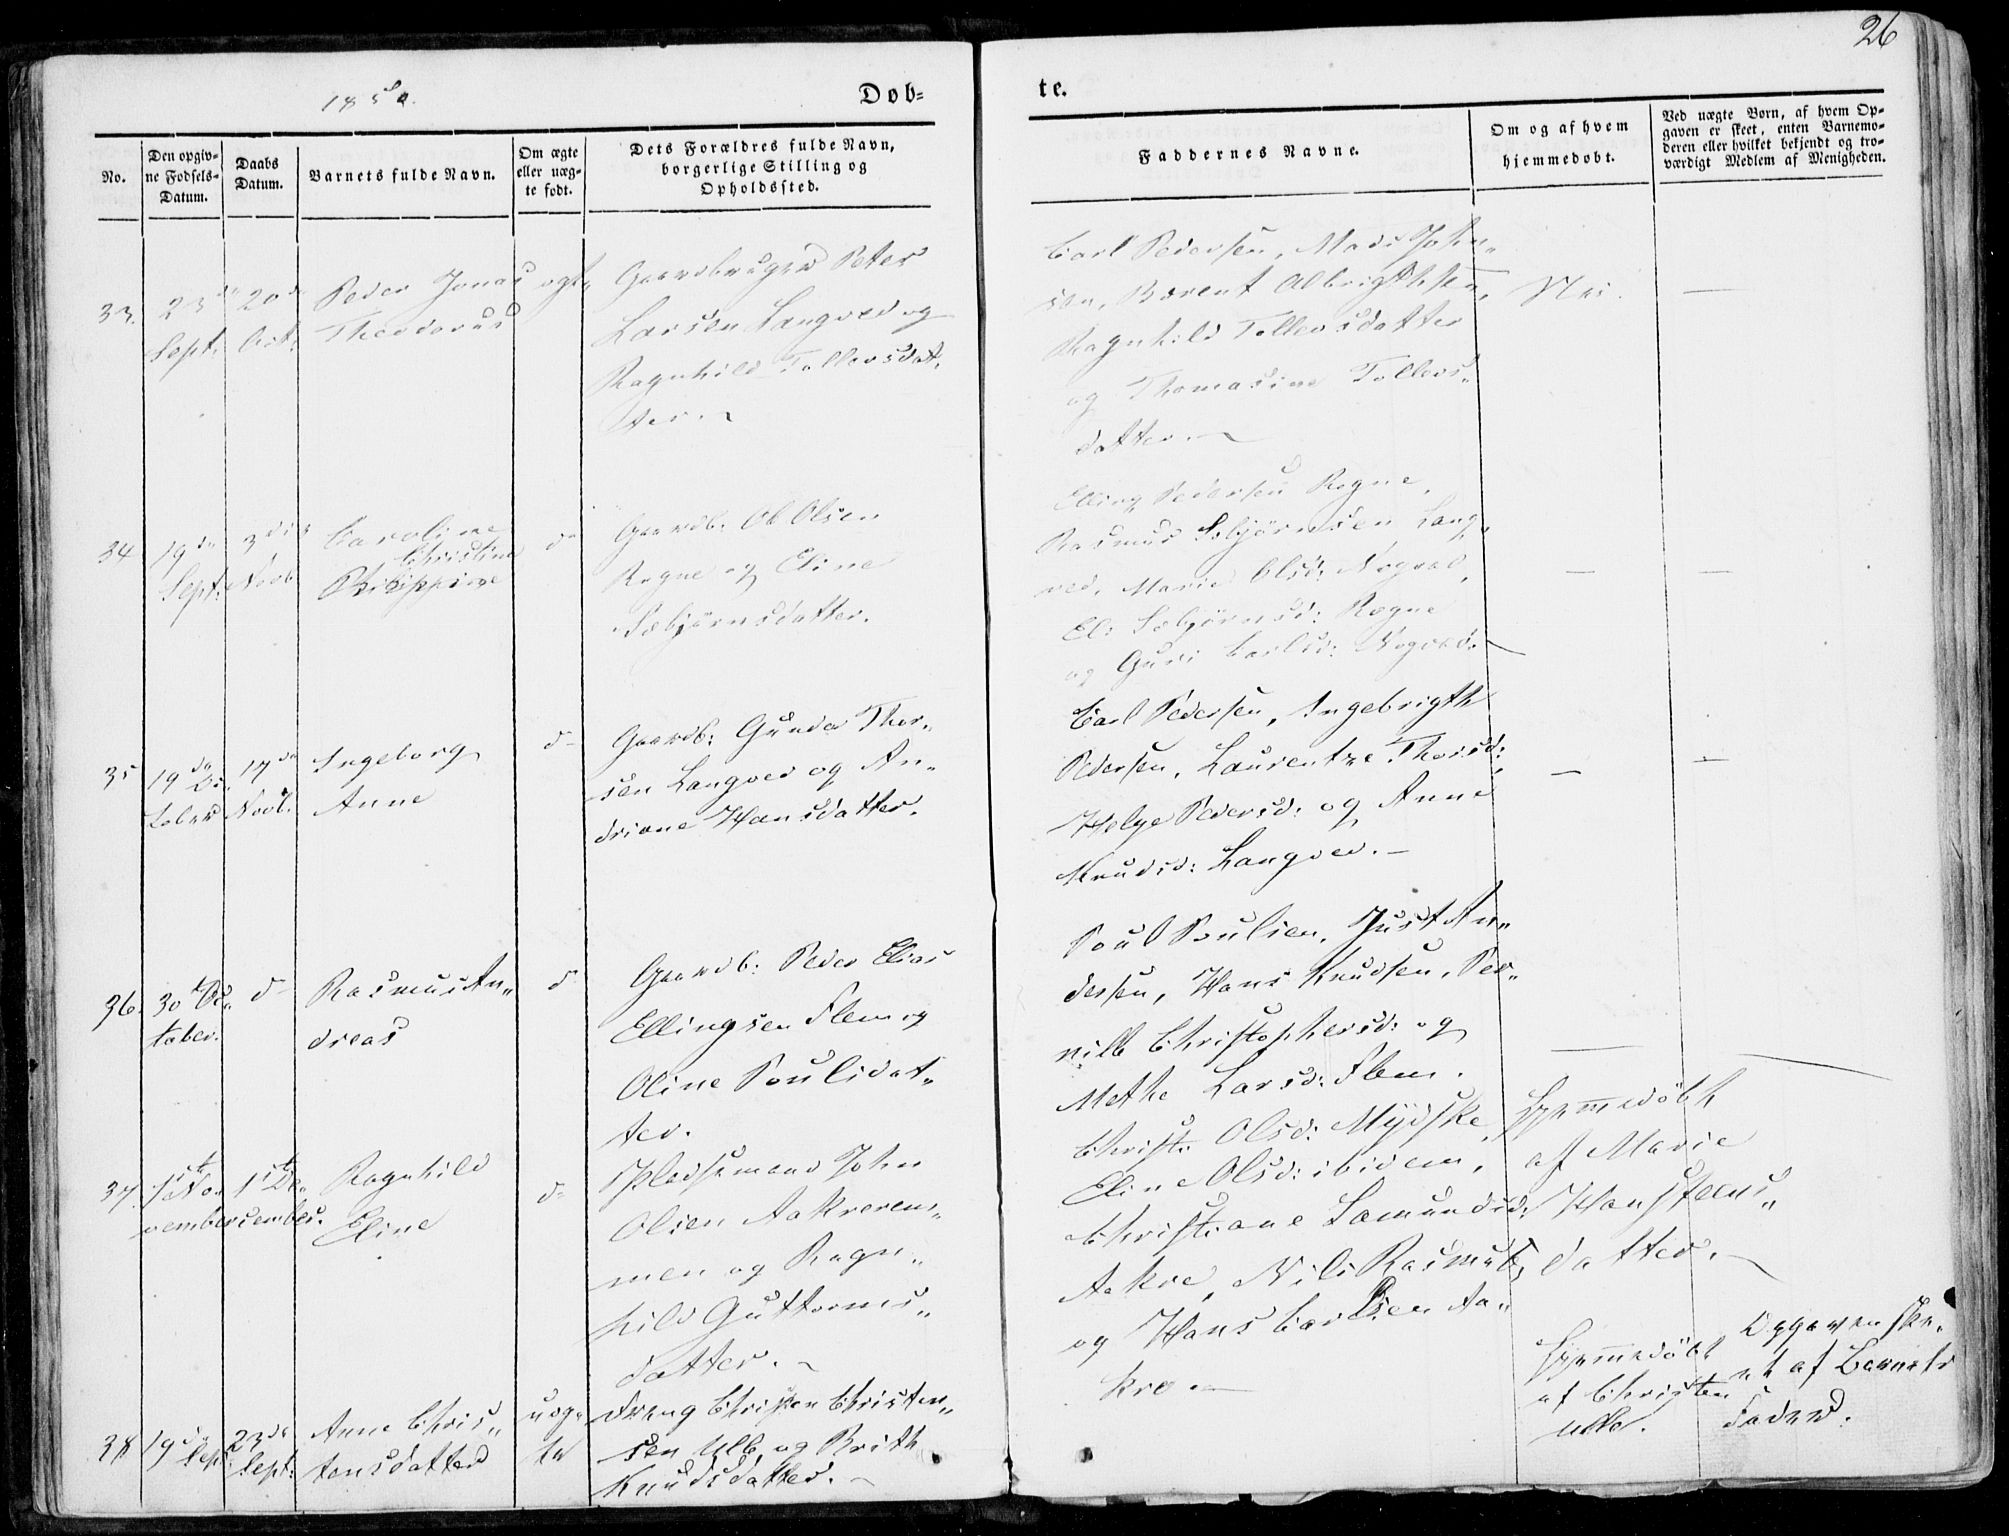 26
1850.
Døb-
te.
No.
Den opgiv-
ne Fødsels-
Datum.
Daabs
Datum.
Barnets fulde Navn.
Om ægte
eller uæg-
te født.
Dets Forældres fulde Navn,
borgerlige Stilling og
Opholdssted.
Faddernes Navne.
Om og af hvem
hjemmedøbt.
Ved uægte Børn, af hvem Op-
gaven er skeet, enten Barnemo-
deren eller hvilket bekjendt og tro-
værdigt Medlem af Menigheden.
33.
23de
Sept.
20de
Oct:
Peder Jonas
Theodorus
ægt.
Gaardbruger Peter
Larsen Langved og
Ragnhild Tollevsdat„
ter.
Carl Pedersen, Mads John„
sen, Berent Albrigthsen,
Ragnhild Tollevsdatter
og Thomasine Tollevs„
datter.
Nei.
34
19de
Sept:
3die
Novb.
Caroline
Christine
Philippine
do
Gaardb: Ob Olsen
Rogne og Eline
Sæbjörnsdatter.
Elling Pedersen Rogne,
Rasmus Sæbjörnsen Lang„
ved, Marie Olsd: Nogved,
El: Sæbjörnsd: Rogne
og Guri Carlsd: Nogved.
35
19de Oc„
tober
17de
Novb.
Ingeborg
Anne
d-
Gaardb: Gunder Thor„
sen Langved og An„
driane Hansdatter.
Carl Pedersen, Ingebrigth
Pedersen, Laurentze Thorsd:,
Helge Pedersd: og Anne
Knudsd: Langved.
36.
30te Oc„
tober.
d-
Rasmus An„
dreas
d
Gaardb: Peder Elias
Ellingsen Flem og
Oline Poulsdat„
ter.
Poul Poulsen, Just An„
dersen, Hans Knudsen, Per„
nille Christophersd: og
Methe Larsd: Flem.
37.
1ste No„
vember
1ste De„
cember.
Ragnhild
Eline
d-
Pladsemand John
Olsen Aakrerem„
men og Ragn„
hild Guttorms„
datter.
Christi Olsd: Mydske,
Eline Olsd: ibidem,
Christiane Samundsd:
Aakre, Nils Rasmuss,
og Hans Carlsen Aa„
kre
Hjemmedöbt
af Marie
Hans Peens„
datter.
38
19de
Sept
23de
Sept:
Anne Chris„
tensdatter
uæg„
te
Dreng Christen Christen„
sen Ulle og Brith
Knudsdatter.
Hjemmedöbt
af Christen
Ulle.
Opgaven ske„
et af Barnets
Fader.